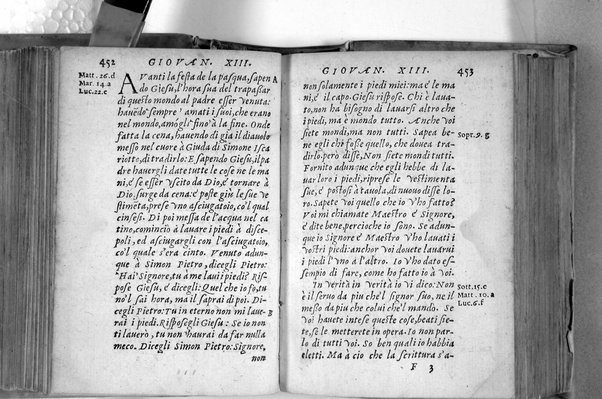 452
GIOVAN. XIII.
Matt. 26.d
Mar. 14.a
Luc. 22.c
AVanti la festa de la pasqua, sapen A
do Giesu, l'hora sua del trapassar
di questo mondo al padre esser venuta:
havendo sempre amati i suoi, che erano
nel mondo, amogli sino à la fine. Onde
fatta la cena, havendo di gia il diavolo
messo nel cuore à Giuda di Simone Isca
riotto, di tradirlo: E sapendo Giesu, il pa
dre havergli date tutte le cose ne le ma
ni, e se esser vscito da Dio, e tornare à
Dio, surge da cena: e poste giu le sue ve
stimeta, prese vno asciugatoio, co'l qual
cinsesi. Di poi messa de l'acqua nel ca
tino, comincio à lavare i piedi à disce-
poli, ed asciugargli con l'asciugatoio,
co'l quale s'era cinto. Venuto adun-
que à Simon Pietro, dicegli Pietro:
Hai Signore, tu à me lavi i piedi? Ris
pose Giesu, e dicegli: Quel che io fo, tu
no'l sai hora, ma il saprai di poi. Di-
cegli Pietro: Tu in eterno non mi lave- B
rai i piedi. Rispose gli Giesu: Se io non
ti lavero, tu non haurai da far nulla
meco. Dicegli Simon Pietro: Signore,
non
GIOVAN. XIII.
453
non solamente i piedi miei: ma e le ma
ni, e il capo. Giesu rispose. Chi è lava-
to, non ha bisogno di lavarsi altro che
i piedi, ma è mondo tutto. Anche voi
siete mondi, ma non tutti. Sapea be-
ne egli chi fosse quello, che dovea tra-
dirlo: però disse, Non siete mondi tutti.
Sopr. 9.g
Fornito adunque che egli hebbe di la-
var loro i piedi, riprese le vestimenta
sue, e postosi à tavola, di nuovo disse lo-
ro. Sapete voi quello che io v'ho fatto?
Voi mi chiamate Maestro e Signore,
e dite bene, percioche io sono. Se adun-
que io Signore e Maestro v'ho lavati i
vostri piedi: anchor voi dovete lavarvi
i piedi l'vno à l'altro. Io v'ho dato es-
sempio di fare, come ho fatto io à voi.
In verità in verità io vi dico: Non
è il servo da piu che'l signor suo, ne il
messo da piu che colui che'l mandò. Se
voi havete intese queste cose, beati sie-
te, se le metterete in opera. Io non par-
lo di tutti voi. So ben quali io habbia
eletti. Ma à cio che la scrittura s'a-
Sott. 15.c
Matt. 10.a
Luc. 6.f
F 3